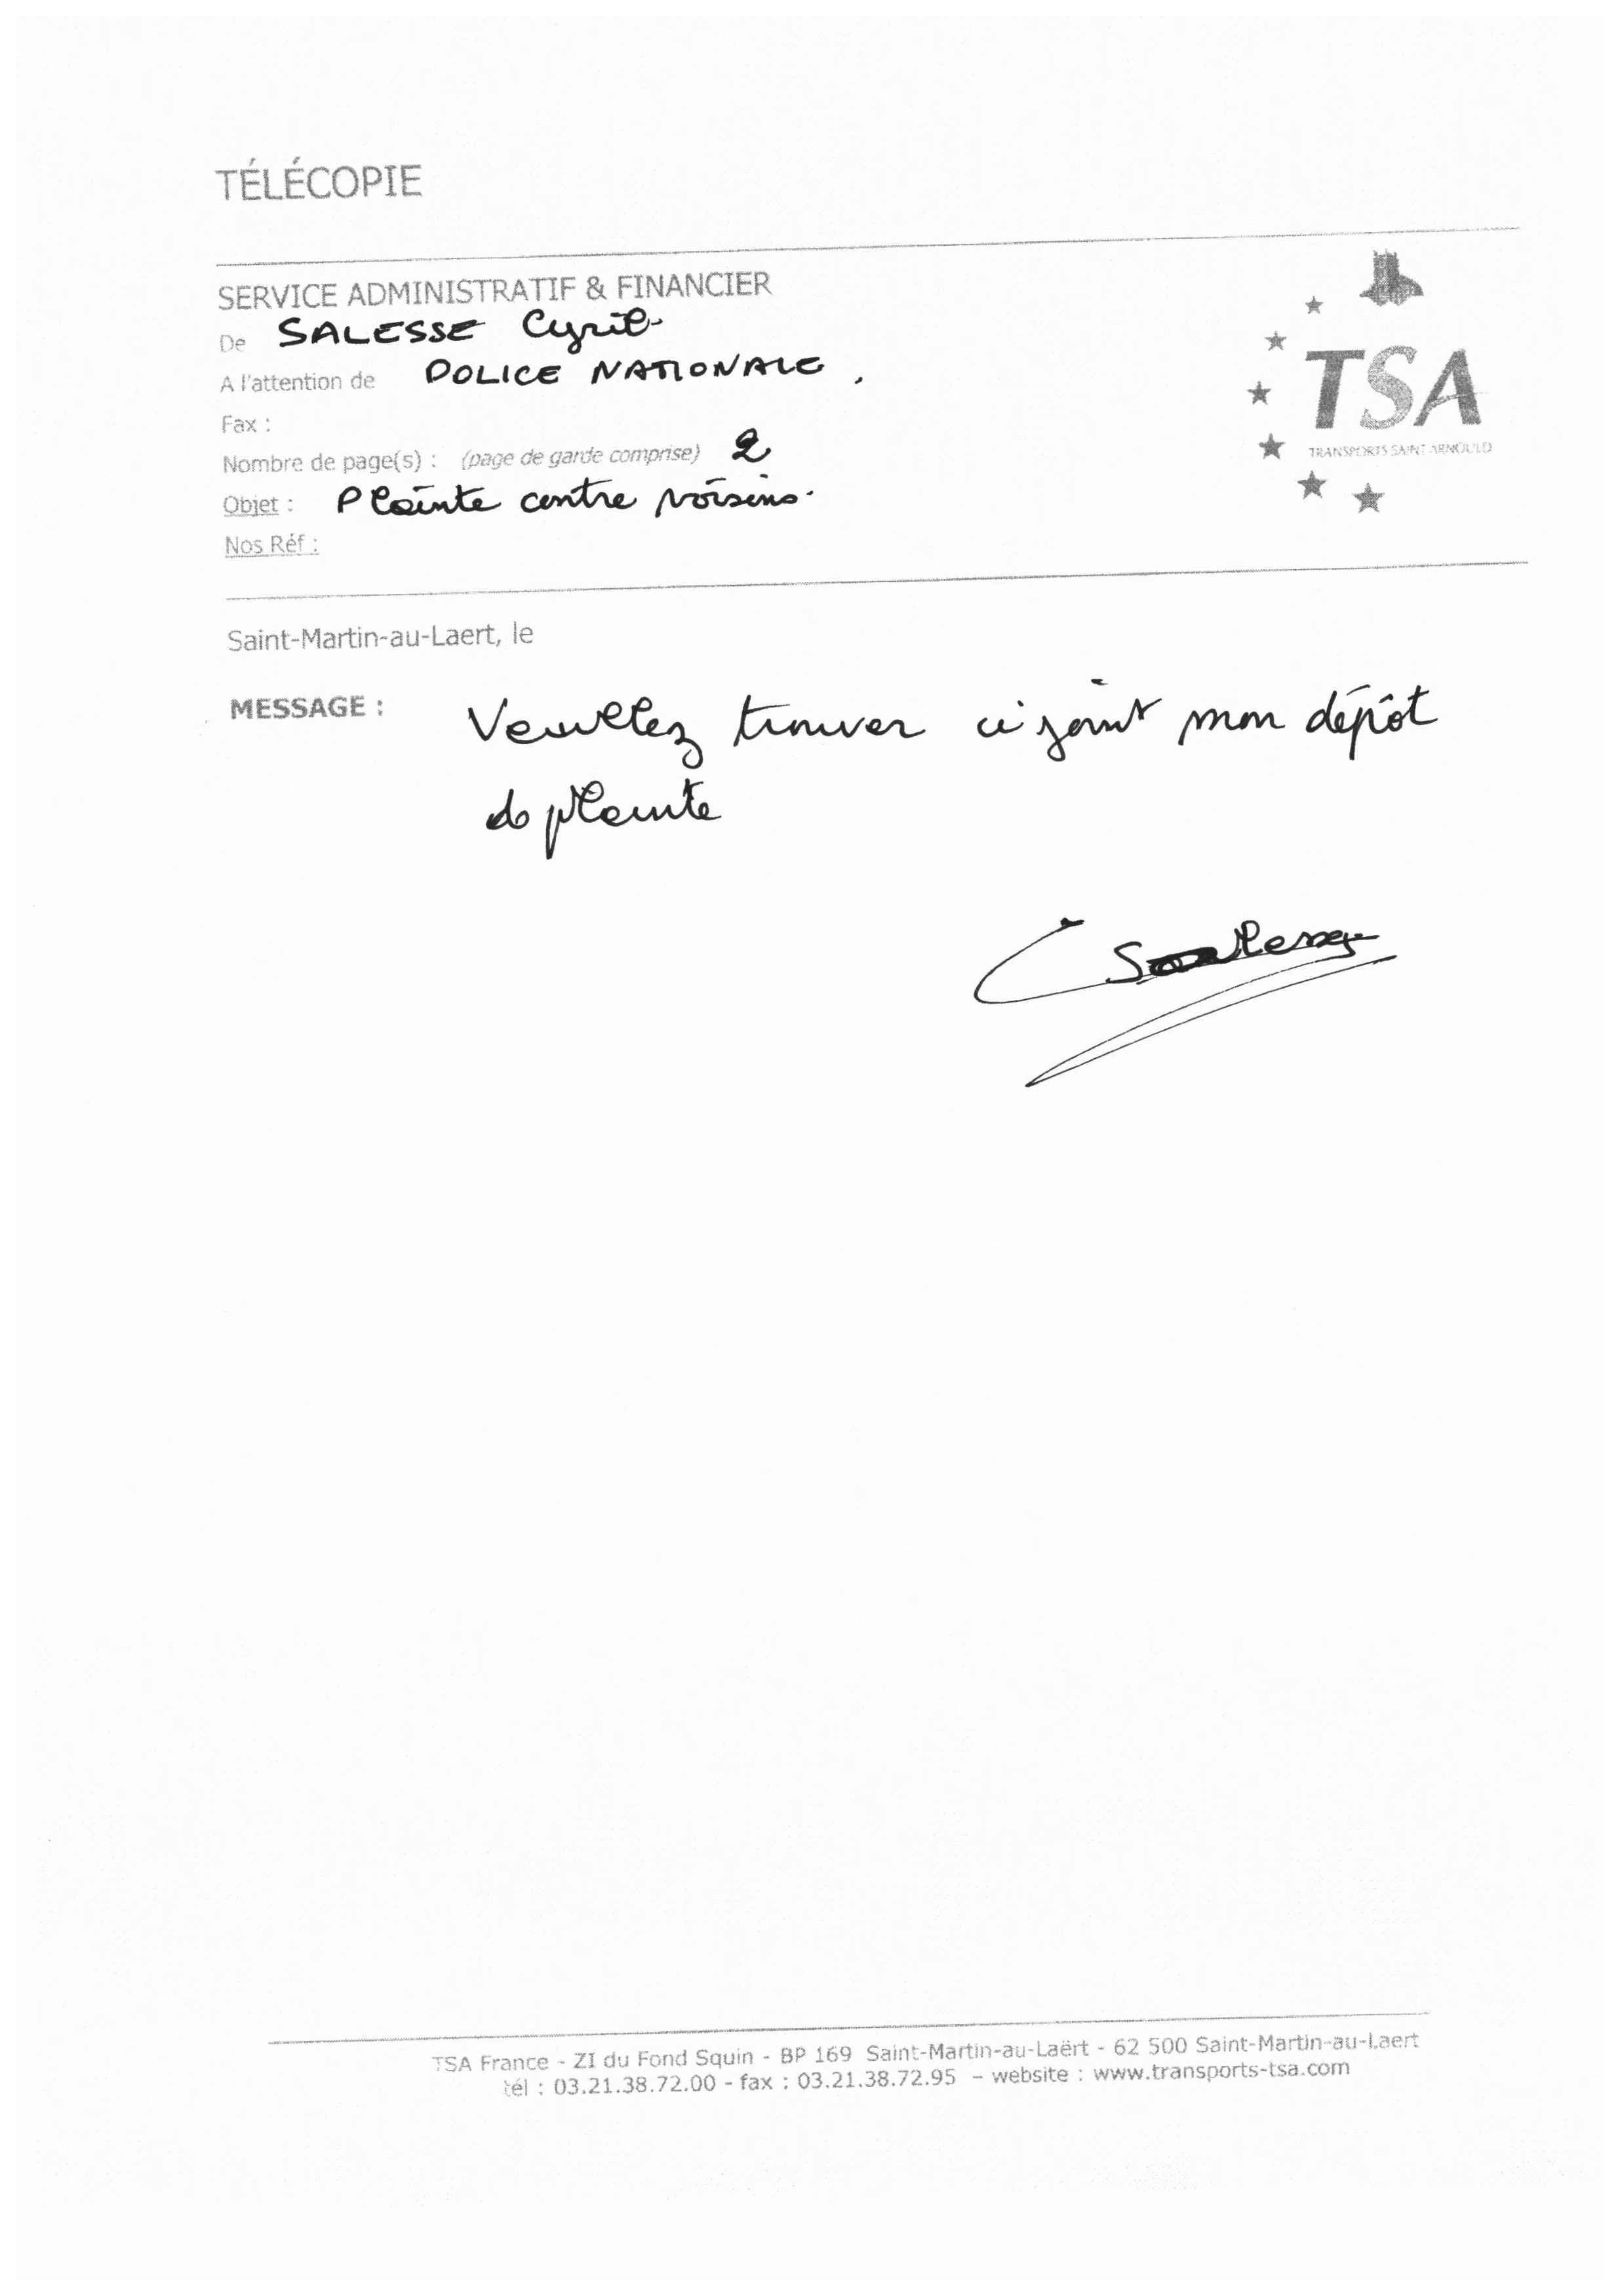 TÉLÉCOPIE
SERVICE ADMINISTRATIF & FINANCIER
De SALESSE Cyril
A l'attention de POLICE NATIONALE.
Fax :
Nombre de page(s) : (page de garde comprise) 2
Objet : Plainte contre voisins.
Nos Réf :
TSA
TRANSPORTS SAINT ARNOULD
Saint-Martin-au-Laert, le
MESSAGE : Veuillez trouver ci joint mon dépôt
de plainte
C Salesse
TSA France - ZI du Fond Squin - BP 169 Saint-Martin-au-Laërt - 62 500 Saint-Martin-au-Laert
tél : 03.21.38.72.00 - fax : 03.21.38.72.95 – website : www.transports-tsa.com